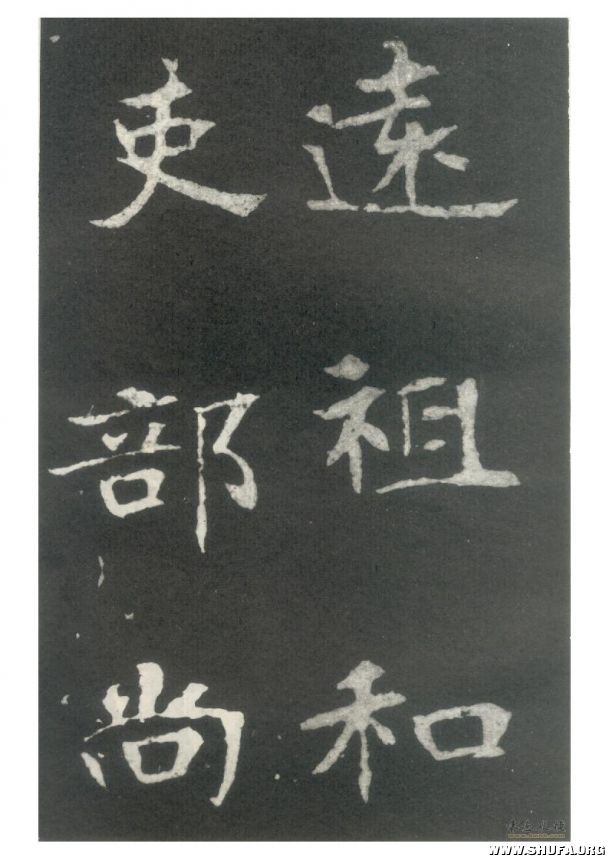 遠祖和
吏部尚
WWW.SHUFA.ORG